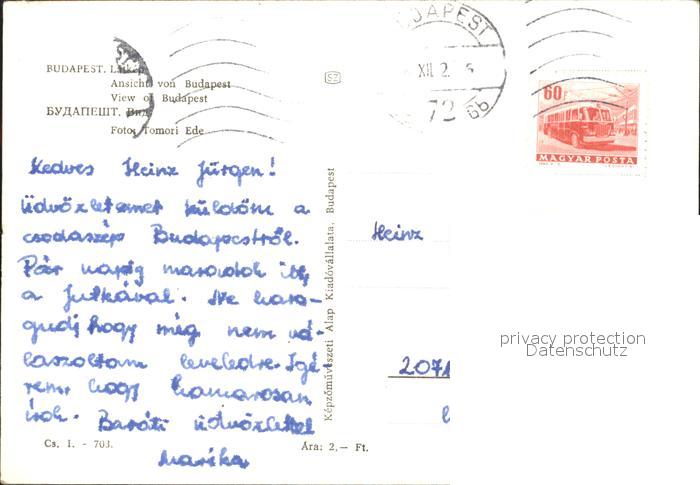 BUDAPEST. Látkép
Ansicht von Budapest
View of Budapest
БУДАПЕШТ. Вид
Foto: Tomori Ede
SZ
BUDAPEST
XII. 2. 6
72
60f
MAGYAR POSTA
Kedves Heinz Jürgen!
Üdvözletemet küldöm a
csodaszép Budapestről.
Pár napig maradok itt,
a Jutkával. Ne hara-
gudj hogy még nem vá-
laszoltam leveledre. Ígé-
rem, hogy hamarosan
írok. Baráti üdvözlettel
Marika
Képzőművészeti Alap Kiadóvállalata, Budapest
Heinz
2071
privacy protection
Datenschutz
Cs. I. - 703.
Ára: 2,— Ft.